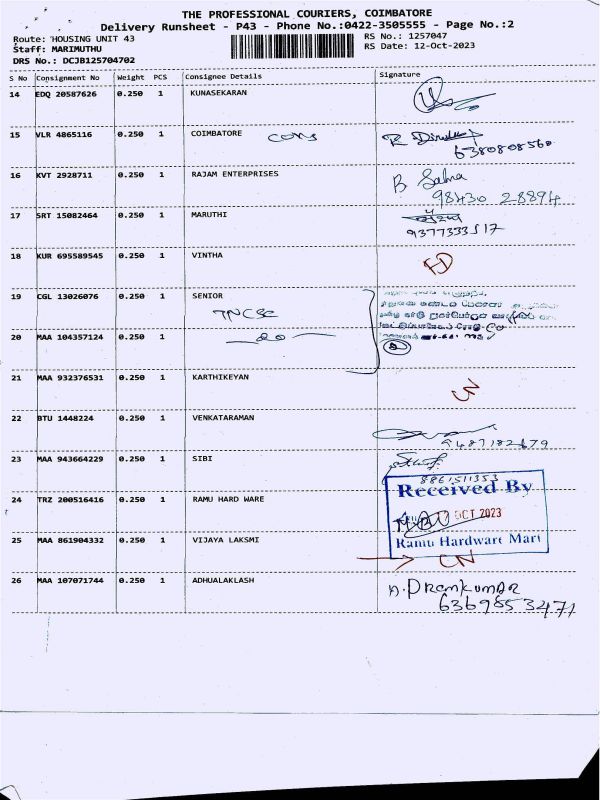 THE PROFESSIONAL COURIERS, COIMBATORE
Delivery Runsheet - P43 - Phone No.:0422-3505555 - Page No.:2
Route: HOUSING UNIT 43 RS No.: 1257047
Staff: MARIMUTHU RS Date: 12-Oct-2023
DRS No.: DCJB125704702
S No Consignment No Weight PCS Consignee Details Signature
14 EDQ 20587626 0.250 1 KUNASEKARAN
15 VLR 4865116 0.250 1 COIMBATORE
6380808560
16 KVT 2928711 0.250 1 RAJAM ENTERPRISES B Salma
98430 28894
17 SRT 15082464 0.250 1 MARUTHI
9377333517
18 KUR 695589545 0.250 1 VINTHA
19 CGL 13026076 0.250 1 SENIOR
TNCSC
20 MAA 104357124 0.250 1
21 MAA 932376531 0.250 1 KARTHIKEYAN
22 BTU 1448224 0.250 1 VENKATARAMAN
9487182679
23 MAA 943664229 0.250 1 SIBI
8861511353
24 TRZ 200516416 0.250 1 RAMU HARD WARE Received By
OCT 2023
25 MAA 861904332 0.250 1 VIJAYA LAKSMI Ramu Hardware Mart
CN
26 MAA 107071744 0.250 1 ADHUALAKLASH A. PREMKUMAR
6369853471